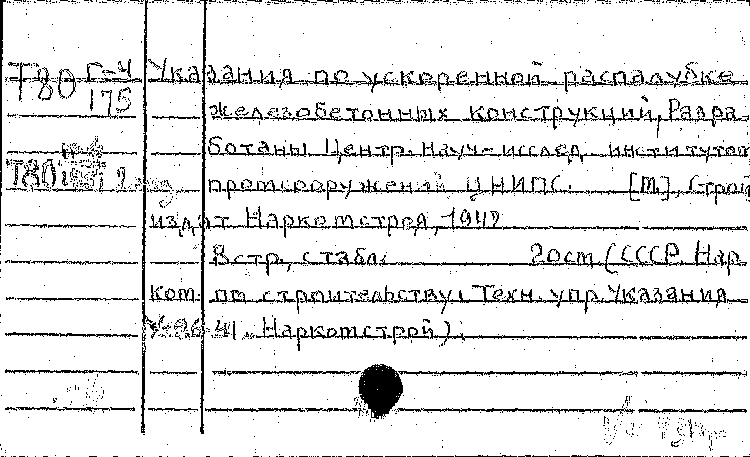 Т80 Г-4 Указания по ускоренной распалубке
175 железобетонных конструкций, Разра
ботаны Центр. науч-исслед. институтом
Т80 промсооружений ЦНИПС. [М], Строй
издат Наркомстроя, 1942
8 стр., с табл. 20 см (СССР. Нар
ком. по строительству. Техн. упр. Указания
У-86-41. Наркомстрой).